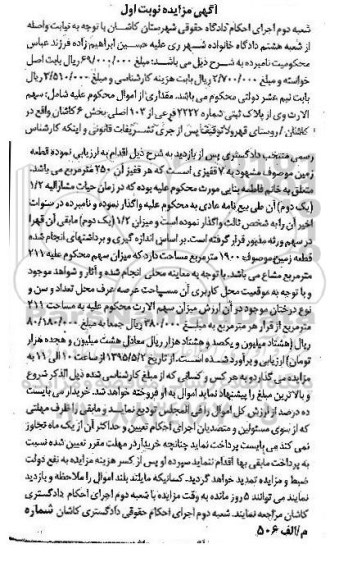 آگهی مزایده نوبت اول
شعبه دوم اجرای احکام دادگاه حقوقی شهرستان کاشان با توجه به نیابت واصله
از شعبه هشتم دادگاه خانواده شهر ری علیه حسین ابراهیم زاده فرزند عباس
محکومیت نامبرده به شرح ذیل می باشد: مبلغ ۶۹/۰۰۰/۰۰۰ ریال بابت اصل
خواسته و مبلغ ۲/۷۰۰/۰۰۰ ریال بابت هزینه کارشناسی و مبلغ ۳/۵۱۰/۰۰۰ ریال
بابت نیم عشر دولتی محکوم می باشد. مقداری از اموال محکوم علیه شامل: سهم
الارث وی از پلاک ثبتی شماره ۲۲۲۲ فرعی از ۱۰۲ اصلی بخش ۶ کاشان واقع در
کاشان / روستای قهرود توقیف پس از جری تشریفات قانونی و اینکه کارشناس
رسمی منتخب دادگستری پس از بازدید به شرح ذیل اقدام به ارزیابی نموده قطعه
زمین موصوف مشهود به ۷ قفیزی است که هر قفیز آن ۲۵۰ مترمربع می باشد.
متعلق به خانم فاطمه بنایی مورث محکوم علیه بوده که در زمان حیات مشارالیه ۱/۲
(یک دوم) آن طی بیع نامه عادی به محکوم علیه واگذار نموده و نامبرده در سنوات
اخیر آن را به شخص ثالث واگذار نموده است و میزان ۱/۲ (یک دوم) مابقی آن قهرا
در سهم ورثه مذبور قرار گرفته است. بر اساس اندازه گیری و برداشتهای انجام شده
قطعه زمین موصوف ۱۹۰۰ مترمربع مساحت دارد که میزان سهم محکوم علیه ۲۱۱
مترمربع مشاع می باشد. با توجه به معاینه محلی انجام شده و آثار و شواهد موجود
و با توجه به موقعیت محل کاربری آن مساحت عرصه عرف محل تعداد و سن و
نوع درختان موجود در آن ارزش میزان سهم الارث محکوم علیه به مساحت ۲۱۱
مترمربع از قرار هر مترمربع به مبلغ ۳۸۰/۰۰۰ ریال جمعا به مبلغ ۸۰/۱۸۰/۰۰۰
ریال (هشتاد میلیون و یکصد و هشتاد هزار ریال معادل هشت میلیون و هجده هزار
تومان) ارزیابی و برآورد شده است. از تاریخ ۱۳۹۵/۵/۲ از ساعت ۱۰ الی ۱۱ به
مزایده می گذارد و به هر کس و کسانی که از مبلغ کارشناسی شده ذیل الذکر شروع
و بالاترین مبلغ را پیشنهاد نماید اموال به او فروخته خواهد شد. خریدار می بایست
ده درصد از ارزش کل اموال را فی المجلس تودیع نمایند و مابقی را ظرف مهلتی
که از سوی مسئولین و متصدیان اجرای احکام تعیین و حداکثر آن از یک ماه تجاوز
نمی کند می بایست پرداخت نماید چنانچه خریدار در مهلت مقرر تعیین شده نسبت
به پرداخت مابقی بها اقدام ننماید سپرده او پس از کسر هزینه مزایده به نفع دولت
ضبط و مزایده تمدید خواهد گردید. کسانیکه مایلند بلند اموال را ملاحظه و بازدید
نمایند می توانند ۵ روز مانده به وقت مزایده با شعبه دوم اجرای احکام دادگستری
کاشان مراجعه نمایند. شعبه دوم اجرای احکام حقوقی دادگستری کاشان شماره
م/الف ۵۰۶